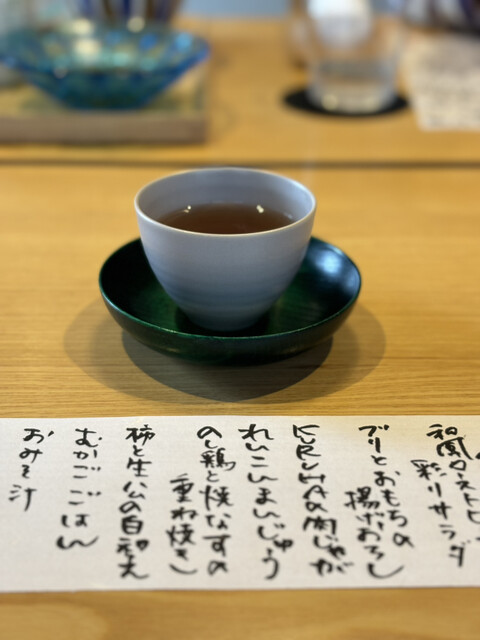 和風ローストビ
彩りサラダ
ブリとおもちの
揚げおろし
KURUMAの肉じゃが
れんこんまんじゅう
のし鶏と焼なすの
重ね焼き
柿と生公の白和え
むかごごはん
おみそ汁